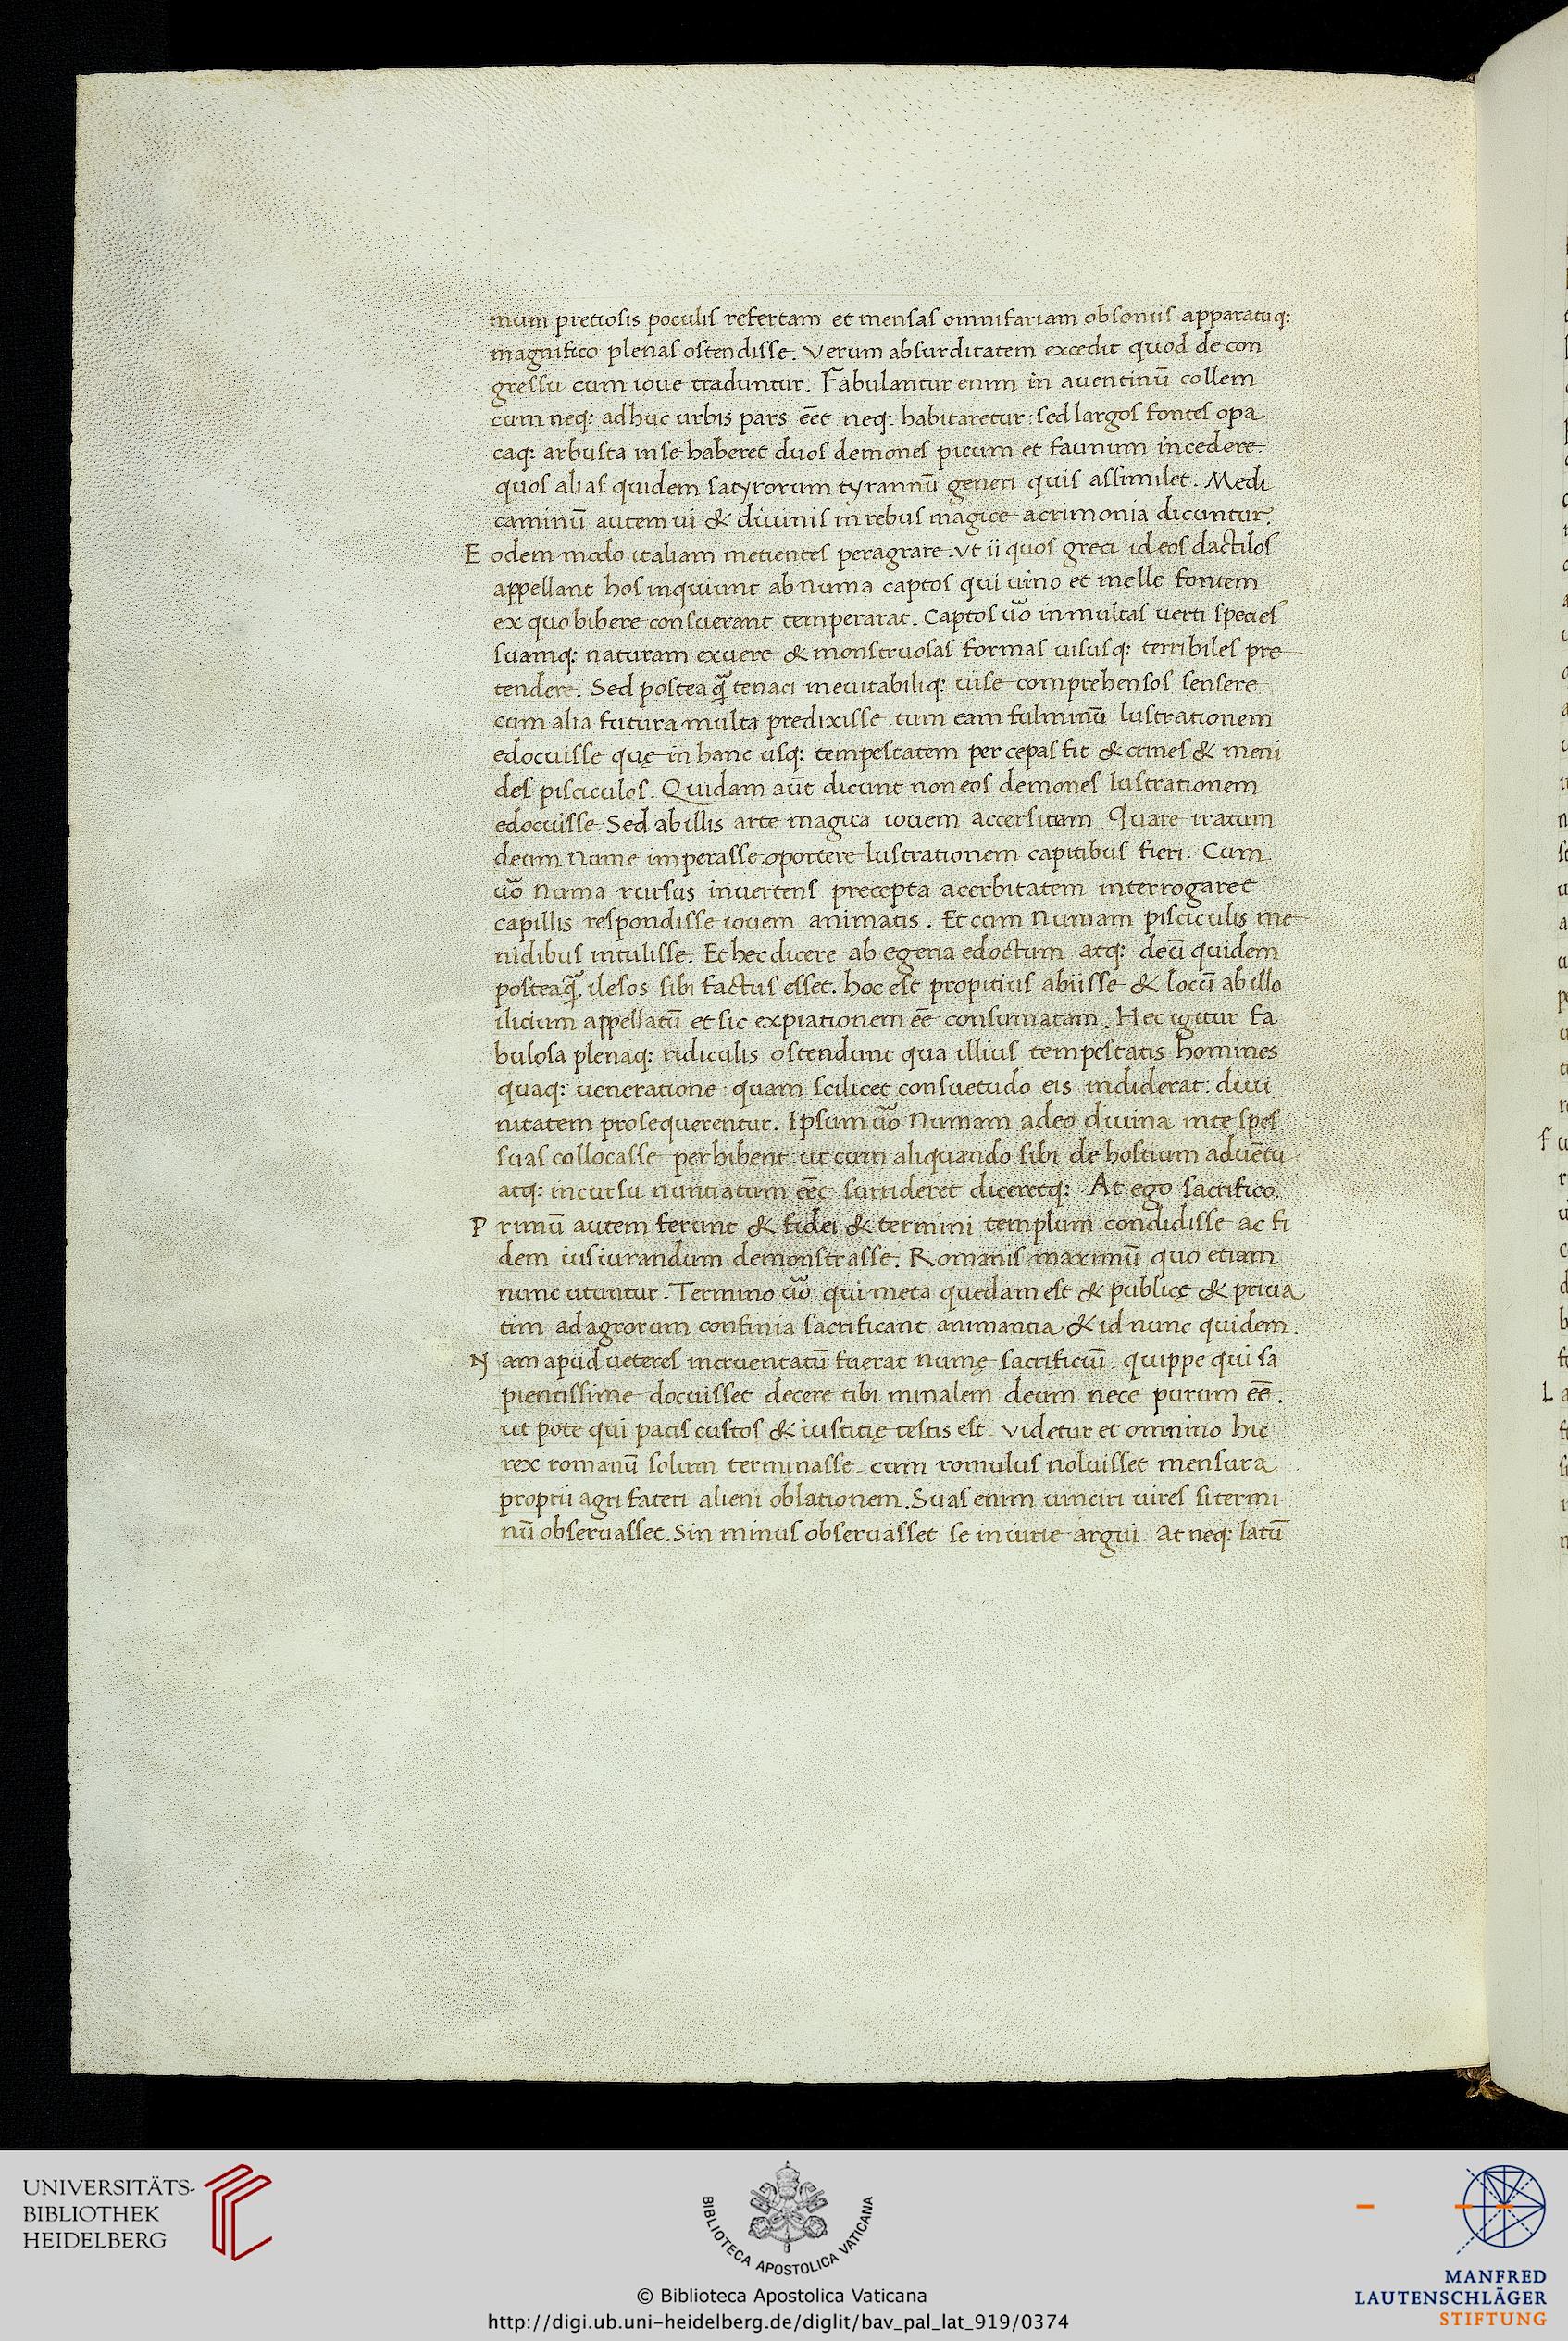 mum pretiosis poculis refertam et mensas omnifariam obsoniis apparatuq:
magnifico plenas ostendisse. Verum absurditatem excedit quod de con
gressu cum ioue traduntur. Fabulantur enim in auentinū collem
cum neq: adhuc urbis pars eēt neq: habitaretur: sed largos fontes opa
caq: arbusta in se haberet duos demones picum et faunum incedere.
quos alias quidem satyrorum tyrannū generi quis assimilet. Medi
caminū autem ui & diuinis in rebus magice acrimonia dicuntur.
E odem modo italiam metientes peragrare. Vt ii quos greci ideos dactilos
appellant hos inquiunt ab numa captos qui uino et melle fontem
ex quo bibere consuerant temperarat. Captos ūo in multas uerti species
suamq: naturam exuere & monstruosas formas uisusq: terribiles pre
tendere. Sed posteaq̄ tenaci ineuitabiliq: uise comprehensos sensere
cum alia futura multa predixisse. tum eam fulminū lustrationem
edocuisse quę in hanc usq: tempestatem per cepas fit & crines & meni
des pisciculos. Quidam aūt dicunt non eos demones lustrationem
edocuisse. Sed ab illis arte magica iouem accersitum. Quare iratum
deum Nume imperasse oportere lustrationem capitibus fieri. Cum
ūo Numa rursus inuertens precepta acerbitatem interrogaret
capillis respondisse iouem animatis. Et cum Numam pisciculis me
nidibus intulisse. Et hec dicere ab egeria edoctum atq: deū quidem
posteaq̄ ilesos sibi factus esset. hoc est propitius abiisse & locū ab illo
ilicium appellatū et sic expiationem eē consumatam. Hec igitur fa
bulosa plenaq: ridiculis ostendunt qua illius tempestatis homines
quaq: ueneratione quam scilicet consuetudo eis indiderat: diui
nitatem prosequerentur. Ipsum ūo Numam adeo diuina inte spes
suas collocasse perhibent: ut cum aliquando sibi de hostium aduētu
atq: incursu nuntiatum eēt surrideret diceretq: At ego sacrifico.
P rimū autem ferunt & fidei & termini templum condidisse ac fi
dem iusiurandum demonstrasse. Romanis maximū quo etiam
nunc utuntur. Termino ūo qui meta quedam est & publicę & priua
tim ad agrorum confinia sacrificant animantia & id nunc quidem.
N am apud ueteres incruentatū fuerat numę sacrificiū. quippe qui sa
pientissime docuisset decere tibi minalem deum nece purum eē.
ut pote qui pacis custos & iustitię testis est. Videtur et omnino hic
rex romanū solum terminasse. cum romulus noluisset mensura
proprii agri fateri alieni oblationem. Suas enim uinciri uires si termi
nū obseruasset. Sin minus obseruasset se iniurie argui. At neq: latū
UNIVERSITÄTS-
BIBLIOTHEK
HEIDELBERG
BIBLIOTECA APOSTOLICA VATICANA
© Biblioteca Apostolica Vaticana
http://digi.ub.uni-heidelberg.de/diglit/bav_pal_lat_919/0374
MANFRED
LAUTENSCHLÄGER
STIFTUNG